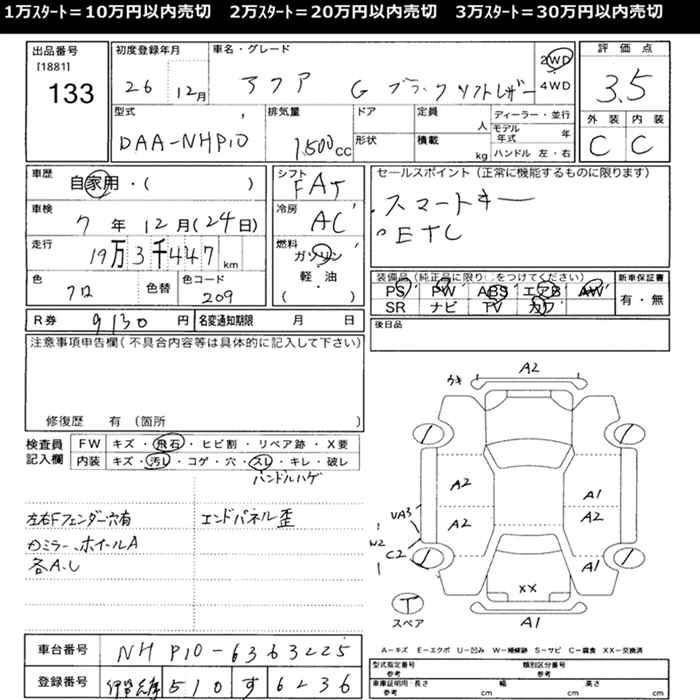 1万ｽﾀｰﾄ＝10万円以内売切　2万ｽﾀｰﾄ＝20万円以内売切　3万ｽﾀｰﾄ＝30万円以内売切
出品番号
[1881]
133
初度登録年月
26 12月
車名・グレード
アクア G ブラックソフトレザー
2WD
4WD
評価点
3.5
外装 内装
C C
型式
DAA-NHP10
排気量
1,500cc
ドア
形状
定員 人
積載 kg
ディーラー・並行
モデル年式 年
ハンドル 左・右
車歴
自家用・( )
車検
7年12月(24日)
走行
19万3千447km
色
クロ
色替
色コード
209
シフト
FAT
冷房
AC
燃料
ガソリン
軽・油
( )
セールスポイント(正常に機能するものに限ります)
スマートキー
ETC
装備品(純正品に限り○をつけてください)
PS PW ABS エアB AW
SR ナビ TV カワ
新車保証書
有・無
後日品
R券 9130円
名変通知期限 月 日
注意事項申告欄(不具合内容等は具体的に記入して下さい)
修復歴 有(箇所
検査員
記入欄
FW キズ・飛石・ヒビ割・リペア跡・X要
内装 キズ・汚レ・コゲ・穴・スレ・キレ・破レ
ハンドルハゲ
左右Fフェンダー穴有
エンドパネル歪
ミラー、ホイールA
各A、U
A2
ウキ
A2
A1
UA3
A2
A2
W2
C2
A1
XX
T
スペア
A1
A－キズ E－エクボ U－凹み W－補修跡 S－サビ C－腐食 XX－交換済
車台番号
NHP10-6363225
登録番号
510 す 6236
型式指定番号
参考
類別区分番号
参考
車庫証明用・長さ
参考 cm
幅
cm
高さ
cm